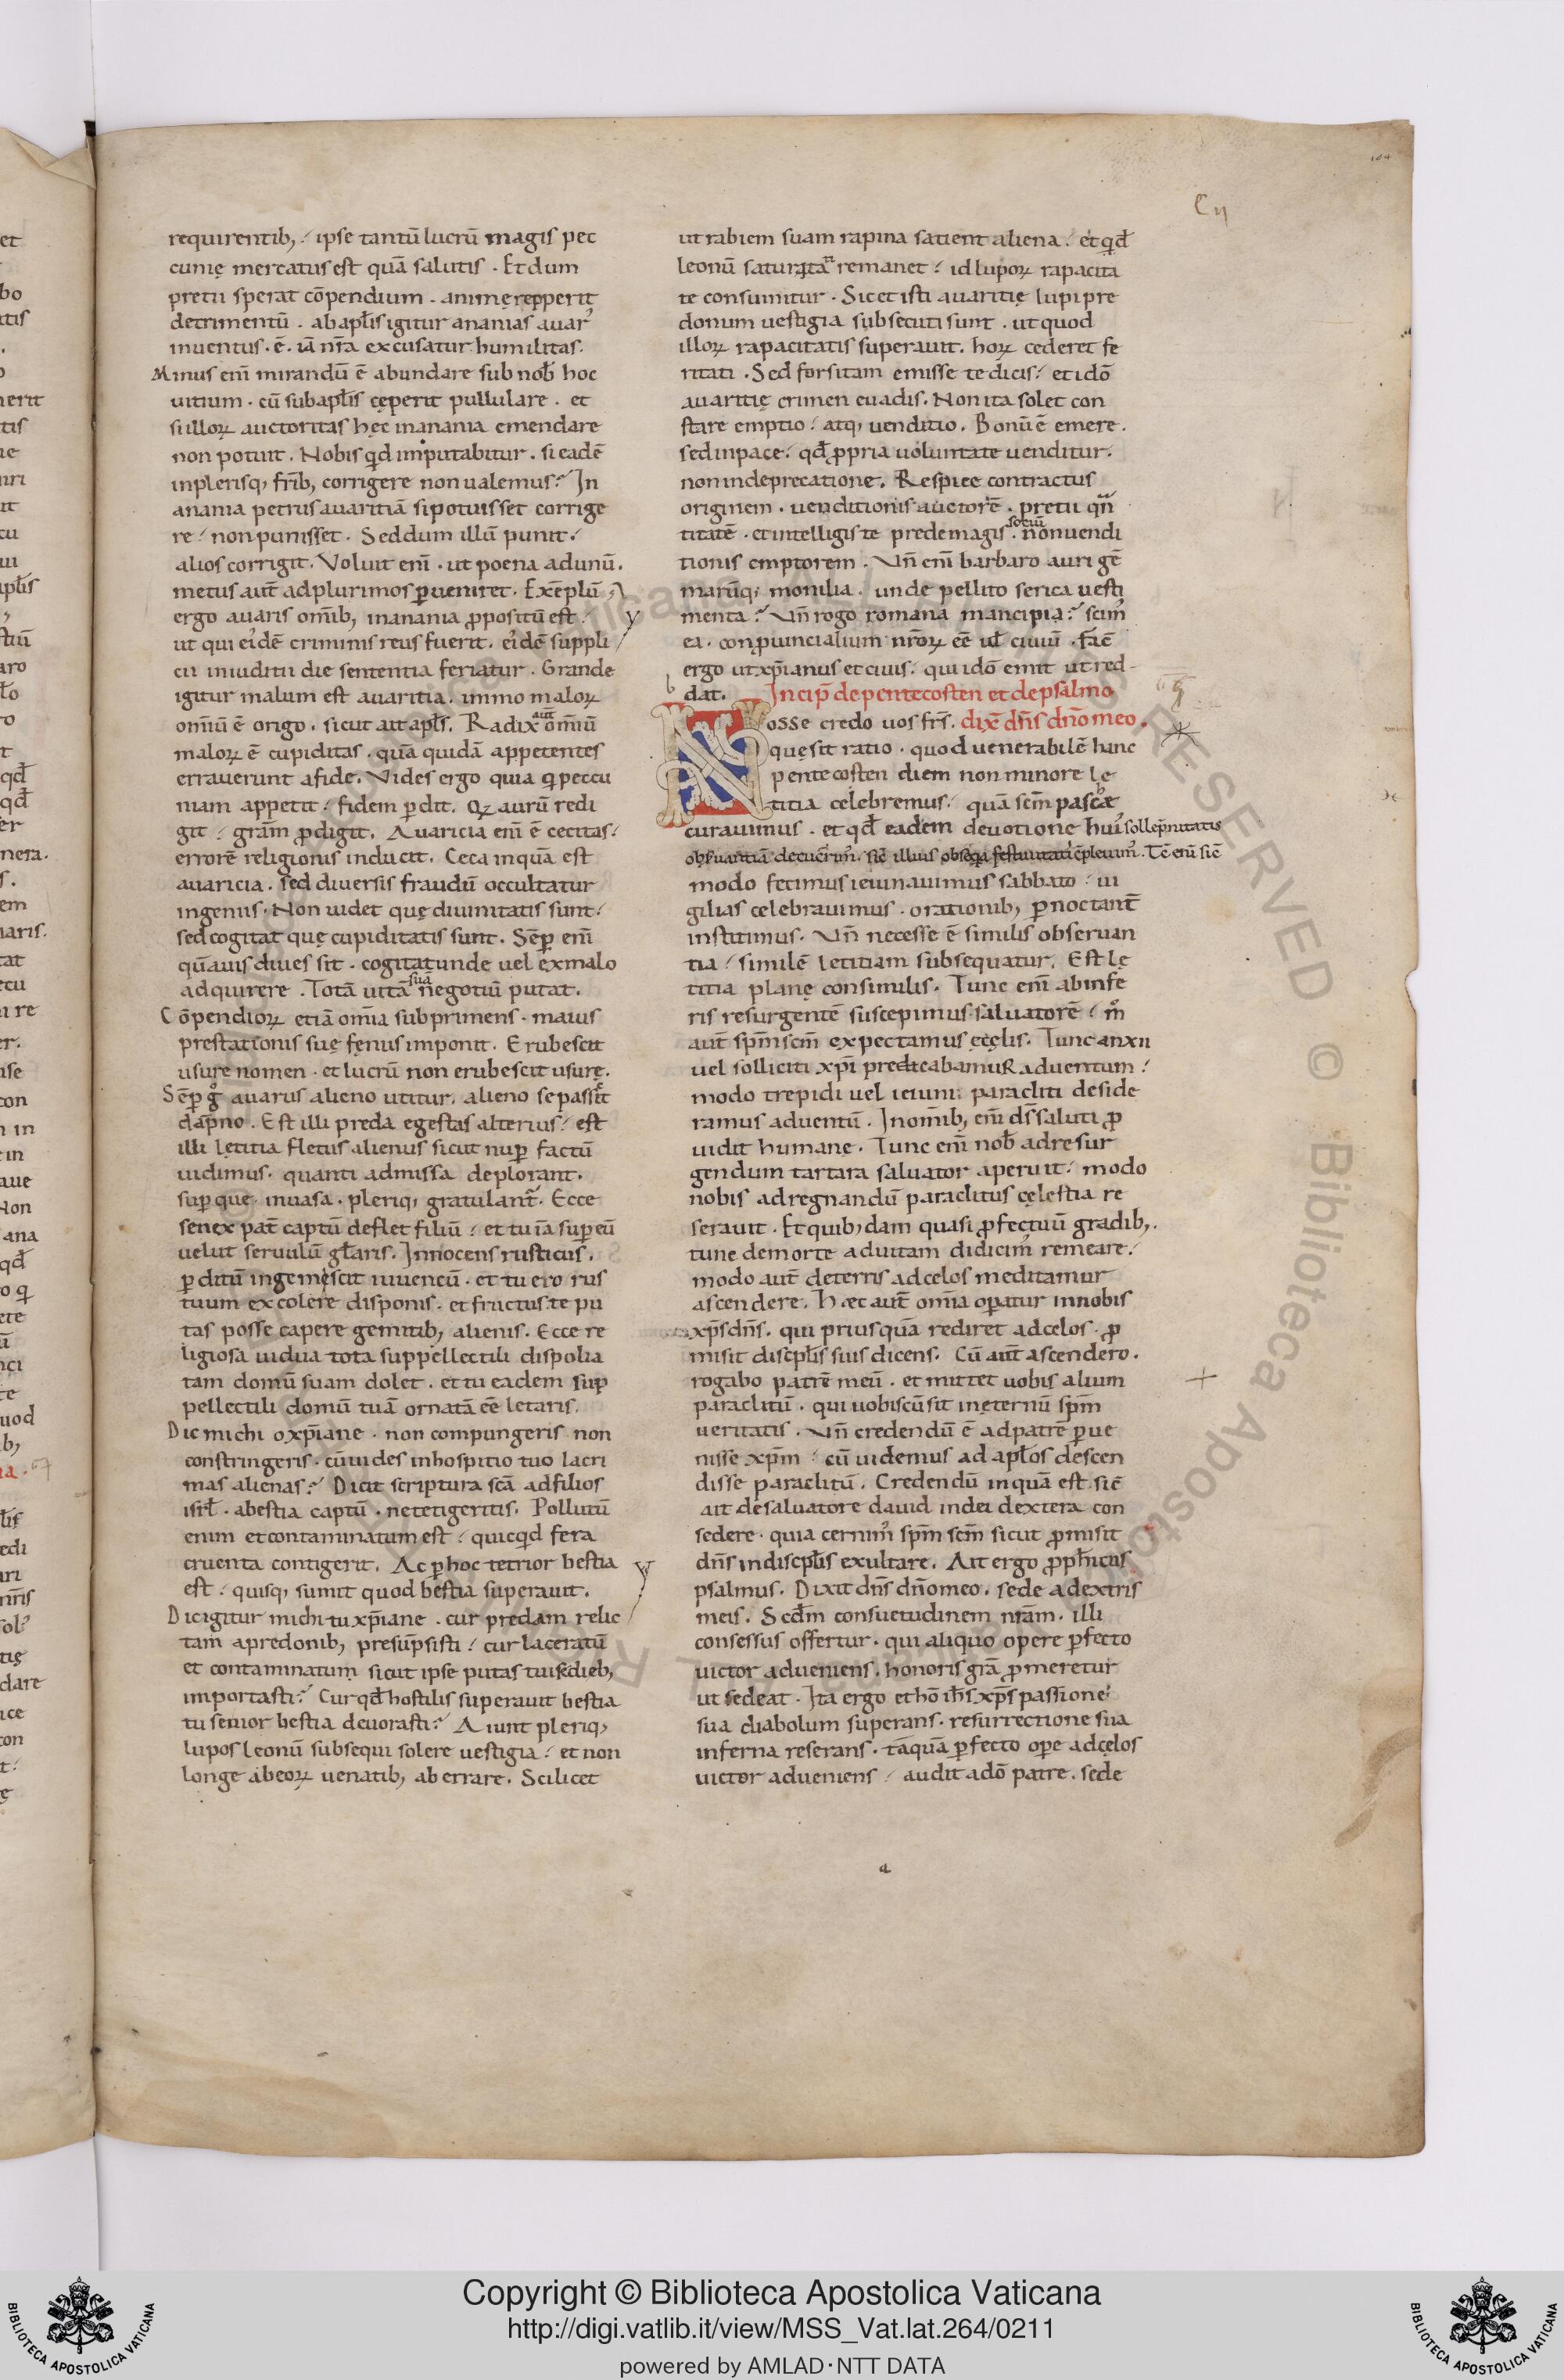 104
C ii
requirentib; ipse tantū lucrū magis pec
cunię mercatus est quā salutis . Et dum
pretii sperat cōpendium . animę repperit
detrimentū . ab apl̄is igitur ananias auar᾽
inuentus . ē . iā nr̄a excusatur humilitas .
Minus enī mirandū ē abundare sub nob̄ hoc
uitium . cū sub apl̄is cęperit pullulare . et
si illoꝝ auctoritas hęc in anania emendare
non potuit . Nobis qd̄ imputabitur . si eadē
in plerisq; fr̄ib; corrigere non ualemus? In
anania petrus auaritiā si potuisset corrige
re non punisset . Sed dum illū punit .
alios corrigit . Voluit enī . ut poena ad unū .
metus aut̄ ad plurimos ꝑueniret . Exēplū
ergo auaris om̄ib; in anania ꝓpositū est
ut qui ei᾽dē criminis reus fuerit . ei᾽dē suppli
cii inuditii die sententia feriatur . Grande
igitur malum est auaritia . immo maloꝝ
om̄iū ē origo . sicut ait apl̄s . Radix aut̄ om̄iū
maloꝝ ē cupiditas . quā quidā appetentes
errauerunt a fide . Vides ergo quia q̄ peccu
niam appetit fidem ꝑdit . qꝫ aurū redi
git grām ꝓdigit . Auaricia enī ē cecitas
errorē religionis inducit . Ceca inquā est
auaricia . sed diuersis fraudū occultatur
ingeniis . Non uidet quę diuinitatis sunt
sed cogitat que cupiditatis sunt . Sēꝑ enī
quāuis diues sit . cogitat unde uel ex malo
adquirere . Totā uitā suā negotiū putat .
Cōpendioꝝ etiā om̄ia sub primens . maius
prestationis suę fęnus imponit . Erubescit
usurę nomen . et lucrū non erubescit usurę .
Sēꝑ gͦ auarus alieno utitur . alieno se passcit
dāpno . Est illi preda egestas alterius est
illi lętitia fletus alienus sicut nuꝑ factū
uidimus . quanti admissa deplorant .
suꝑ que inuasa . pleriq; gratulant̄ . Ecce
senex pat̄ captū deflet filiū et tu iā suꝑ eū
uelut seruulū gl̄aris . Innocens rusticus .
ꝑditū ingemescit iuuencū . et tu ero rus
tuum excolere disponis . et fructus te pu
tas posse capere gemitib; alienis . Ecce re
ligiosa uidua tota suppellectili dispolia
tam domū suam dolet . et tu eadem sup
pellectili domū tuā ornatā ēē letaris .
Dic michi o xp̄iane . non compungeris non
constringeris . cū uides in hospitio tuo lacri
mas alienas? Dicit scriptura scā ad filios
isrl̄ . a bestia captū . ne tetigeritis . Pollutū
enim et contaminatum est quicqd̄ fera
cruenta contigerit . Ac ꝑ hoc tetrior bestia
est quisq; sumit quod bestia superauit .
Dic igitur michi tu xp̄iane . cur predam relic
tam a predonib; presūpsisti cur laceratū
et contaminatum sicut ipse putas tuis ędib;
importasti? Cur qd̄ hostilis superauit bestia
tu senior bestia deuorasti? Aiunt pleriq;
lupos leonū subsequi solere uestigia et non
longe ab eoꝝ uenatib; aberrare . Scilicet
ut rabiem suam rapina satient aliena . et qd̄
leonū saturitati remanet id lupoꝝ rapacita
te consumitur . Sic et isti auaritię lupi pre
donum uestigia subsecuti sunt . ut quod
illoꝝ rapacitatis superauit . hoꝝ cederet fe
ritati . Sed forsitam emisse te dicis et idō
auaritię crimen euadis . Non ita solet con
stare emptio atq; uenditio . Bonū ē emere .
sed in pace qd̄ ꝓpria uoluntate uenditur .
non in deprecatione . Respice contractus
originem . uenditionis auctorē . pretii quā
titatē . et intelligis te prede magis sociū . n̄ non uendi
tionis emptorem . Vn̄ enī barbaro auri gē
marūq; monilia . unde pellito serica uesti
menta? Vn̄ rogo romana mancipia? scim᾽
ea . con ꝓuincialium nr̄oꝝ ēē ul̄ ciuiū . Fac̄
ergo ut xp̄ianus et ciuis . qui idō emit ut red-
dat . Incip̄ de pentecosten et de psalmo
Nosse credo uos frs̄ . dixc̄ dn̄s dn̄o meo .
quę sit ratio . quod uenerabilē hanc
pentecosten diem non minore lę
titia celebremus quā scm̄ pascha
curauimus . et qd̄ eadem deuotione hui᾽ sollep̄nitatis
obseruantiā decucrim᾽ . sic̄ illius obseq̄a festiuitati ēpleuim᾽ . Tc̄ enī sic̄
modo fecimus ieiunauimus sabbato ui
gilias celebrauimus . orationib; ꝑnoctant̄
institimus . Vn̄ necesse ē similis obseruan
tia similē letitiam subsequatur . Est lę
titia planę consimilis . Tunc enī ab infe
ris resurgentē suscepimus saluatorē mͦ
aut̄ spm̄ scm̄ expectamus ęcęlis . Tunc anxii
uel solliciti xp̄i predicabamuR aduentum
modo trepidi uel ieiuni paracliti deside
ramus aduentū . In om̄ib; enī ds̄ saluti ꝓ
uidit humanę . Tunc enī nob̄ ad resur
gendum tartara saluator aperuit modo
nobis ad regnandū paraclitus cęlestia re
serauit . Et quib;dam quasi ꝓfectuū gradib; .
tunc de morte ad uitam didicim᾽ remeare .
modo aut̄ de terris ad celos meditamur
ascendere . Hæc aut̄ om̄ia oꝑatur in nobis
xp̄s dn̄s . qui priusquā rediret ad celos . ꝓ
misit discpl̄is suis dicens . Cū aut̄ ascendero .
rogabo patrē meū . et mittet uobis alium
paraclitū . qui uobiscū sit in ęternū spm̄
ueritatis . Vn̄ credendū ē ad patrē ꝑue
nisse xp̄m cū uidemus ad apl̄os descen
disse paraclitū . Credendū inquā est sic̄
ait de saluatore dauid in dei dextera con
sedere . quia cernim᾽ spm̄ scm̄ sicut ꝓmisit
dn̄s in discpl̄is exultare . Ait ergo ꝓph̄icus
psalmus . Dixit dn̄s dn̄o meo . sede a dextris
meis . Scdm̄ consuetudinem nr̄am . illi
consessus offertur . qui aliquo opere ꝑfecto
uictor adueniens . honoris grā ꝓmeretur
ut sedeat . Ita ergo et hō ih̄s xp̄s passione
sua diabolum superans . resurrectione sua
inferna reserans . tāquā ꝑfecto oꝑe ad cęlos
uictor adueniens audit a dō patre . sede
a
Copyright © Biblioteca Apostolica Vaticana
http://digi.vatlib.it/view/MSS_Vat.lat.264/0211
powered by AMLAD·NTT DATA
BIBLIOTECA APOSTOLICA VATICANA
BIBLIOTECA APOSTOLICA VATICANA